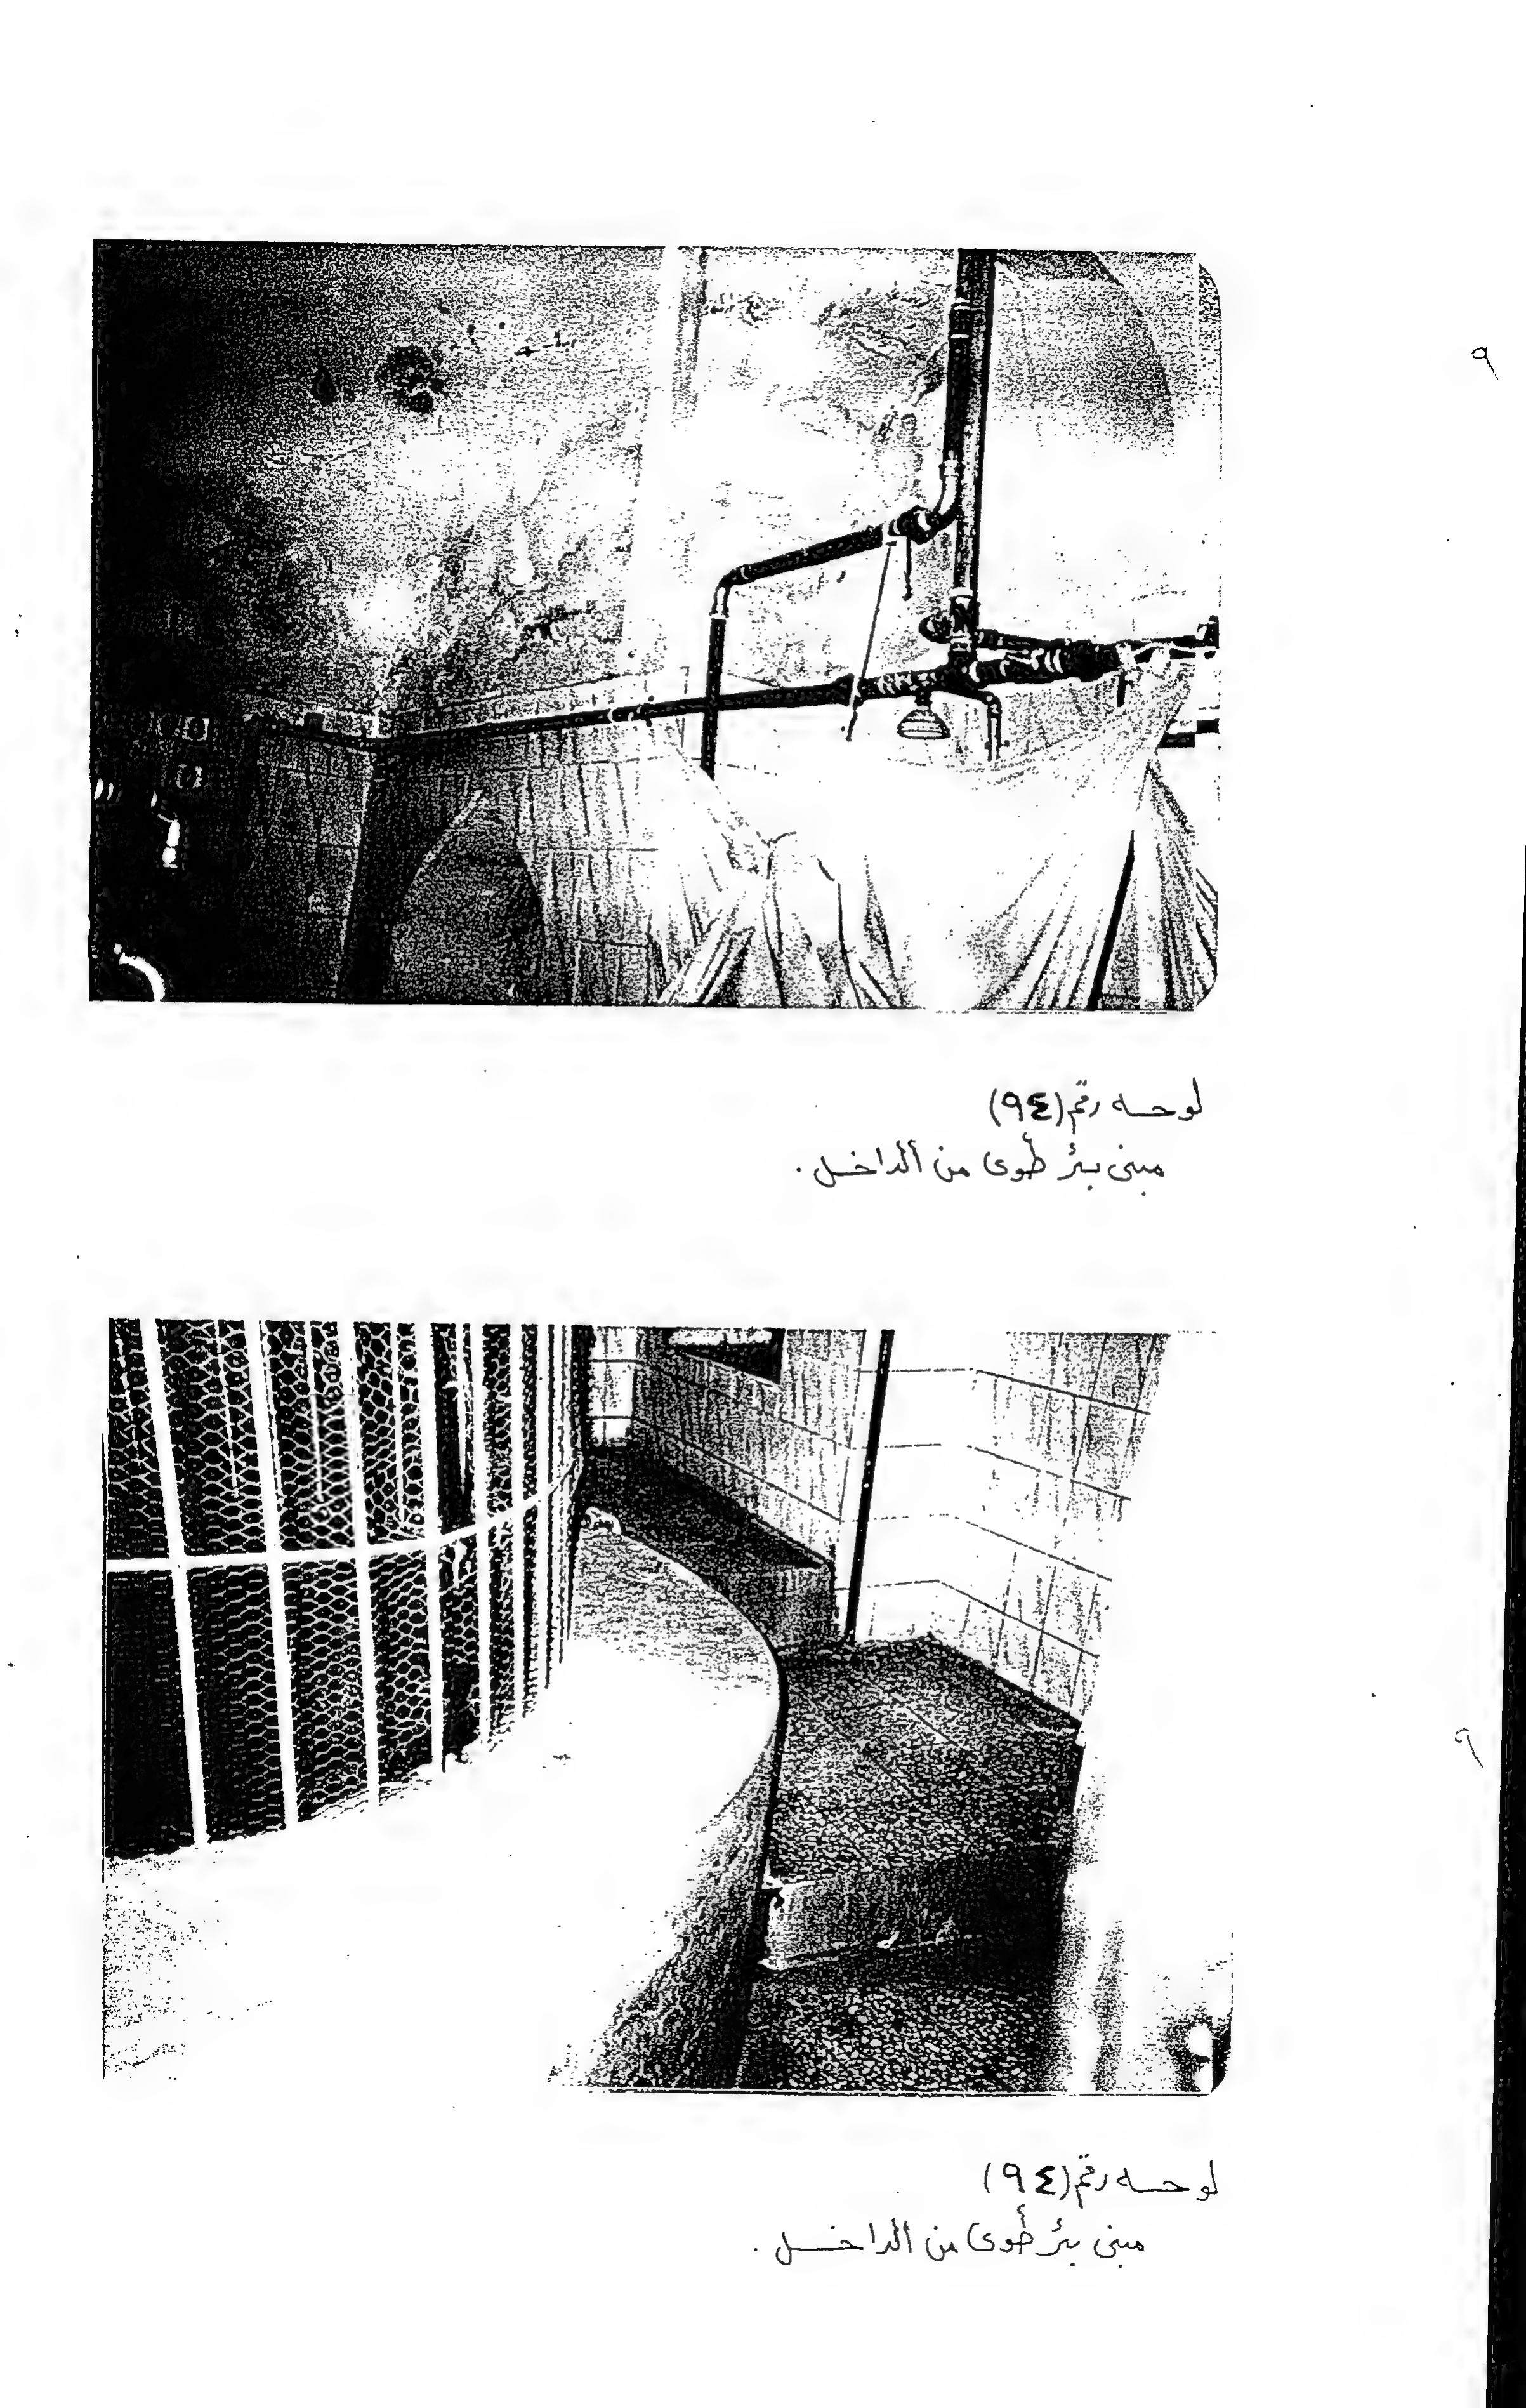 لوحه رقم (٩٤)
مبنى بئر طوى من الداخل .
لوحه رقم (٩٤)
مبنى بئر طوى من الداخل .